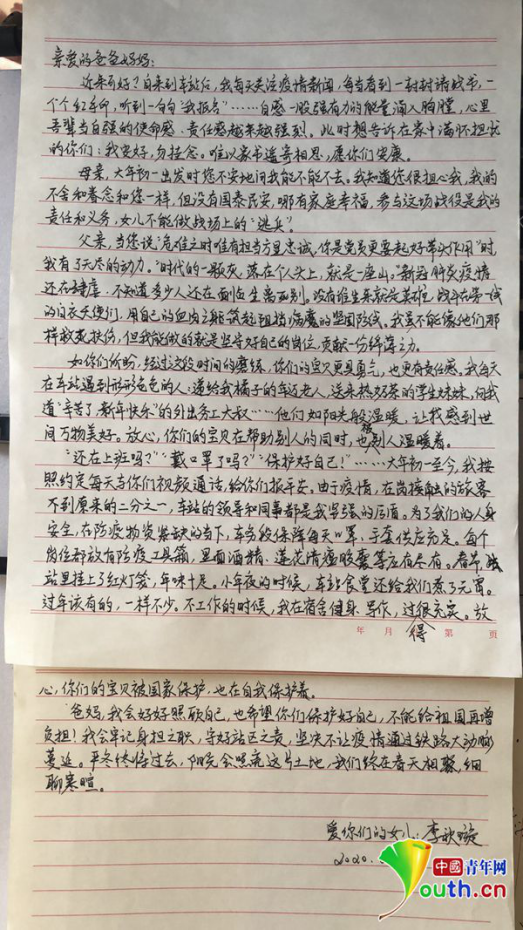 亲爱的爸爸妈妈:
近来可好?自来到车站后,我每天关注疫情新闻,每当看到一封封请战书,一
个个红手印,听到一句句“我报名”……自感一股强有力的能量涌入胸膛,心里
吾辈当自强的使命感、责任感越来越强烈。此时想告诉在家中满怀担忧
的你们:我安好,勿挂念。唯以家书遥寄相思,愿你们安康。
母亲,大年初一出发时您不安地问我能不能不去。我知道您很担心我,我的
不舍和眷念和您一样,但没有国泰民安,哪有家庭幸福,参与这场战役是我的
责任和义务,女儿不能做战场上的“逃兵”。
父亲,当您说“危难之时唯有担当方显忠诚,你是党员更要起好带头作用”时,
我有了无尽的动力。“时代的一颗灰,落在个人头上,就是一座山”,新冠肺炎疫情
还在肆虐,不知道多少人还在面临生离死别。没有谁生来就是英雄,战斗在第一线
的白衣天使们,用自己的血肉之躯筑起阻挡病魔的坚固防线。我虽不能像他们那
样救死扶伤,但我能做的就是坚守好自己的岗位,贡献一份绵薄之力。
如你们所盼,经过这段时间的磨练,你们的宝贝更具勇气,也更有责任感,我每天
在车站遇到形形色色的人:递给我橘子的年迈老人,送来热奶茶的学生妹妹,向我
道“辛苦了,新年快乐”的外出务工大叔……他们如阳光般温暖,让我感到世
间万物美好。放心,你们的宝贝在帮助别人的同时,也被别人温暖着。
“还在上班吗?”“戴口罩了吗?”“保护好自己!”……大年初一至今,我按
照约定每天与你们视频通话,给你们报平安。由于疫情,在岗接触的旅客
不到原来的二分之一,车站的领导和同事都是我坚强的后盾。为了我们的人身
安全,在防疫物资紧缺的当下,车务段保障每天口罩、手套供应充足。每个
岗位都放有防疫工具箱,里面酒精、莲花清瘟胶囊等应有尽有。春节,
站里挂上了红灯笼,年味十足。小年夜的时候,车站食堂还给我们煮了元宵。
过年该有的,一样不少。不工作的时候,我在宿舍健身、写作,过得很充实。放
年 月 第 页
心,你们的宝贝被国家保护,也在自我保护着。
爸妈,我会好好照顾自己,也希望你们保护好自己,不能给祖国再增
负担!我会牢记身担之职,守好站区之责,坚决不让疫情通过铁路大动脉
蔓延。严冬终将过去,阳光会照亮这片土地,我们终在春天相聚,细
聊寒暄。
爱你们的女儿:李欣璇
2020.
中國青年网
Youth.cn